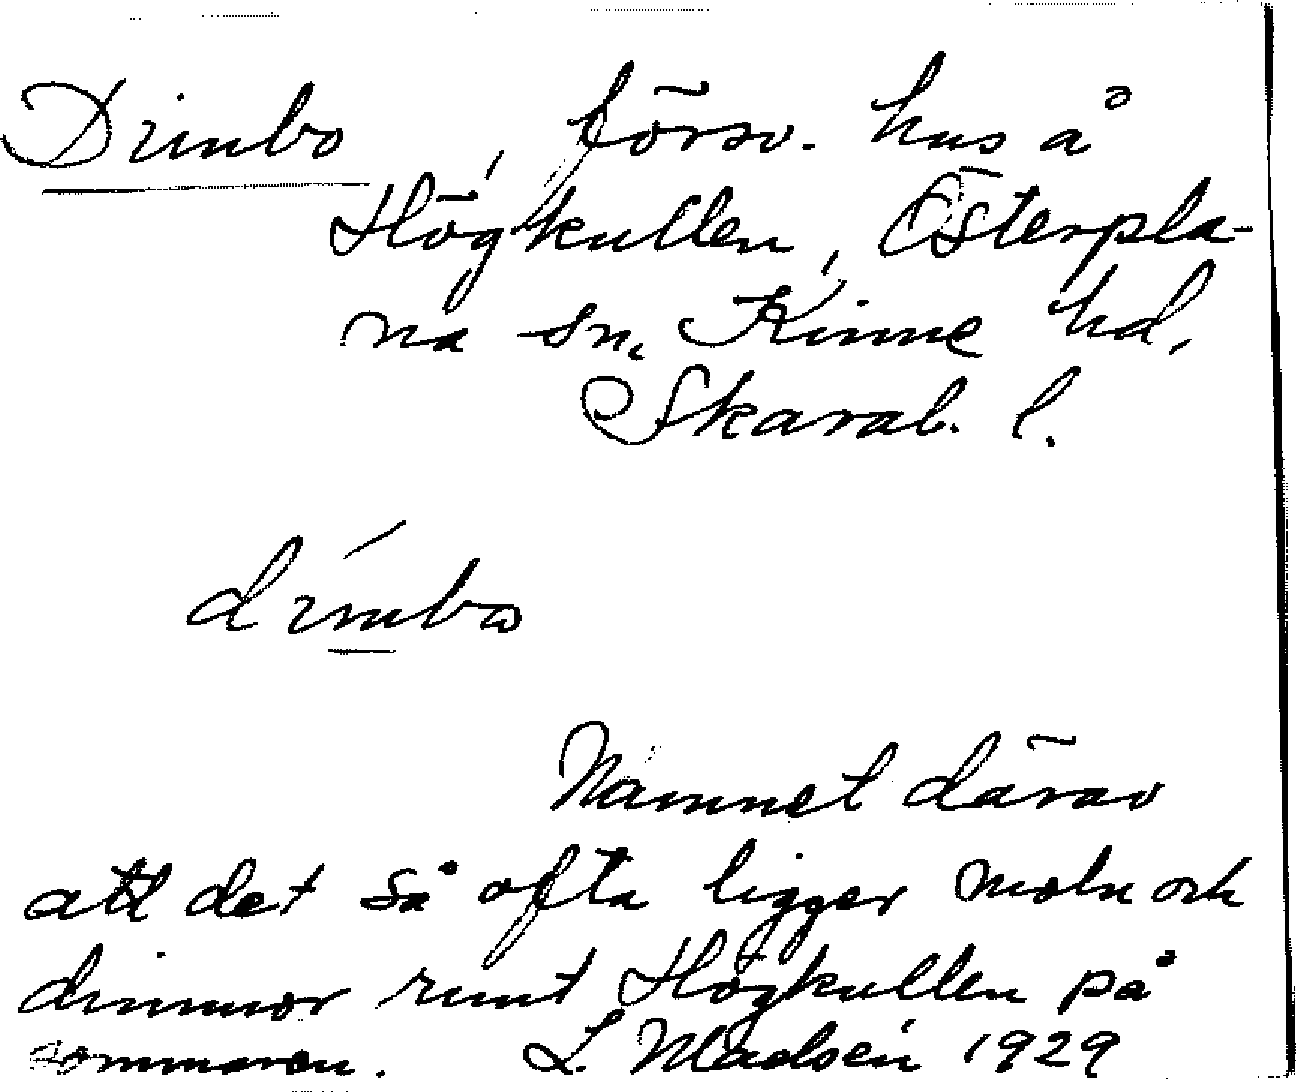 Dimbo, försv. hus å
Högkullen, Österpla-
na sn, Kinne hd,
Skarab. l.
dimbo
Namnet därav
att det så ofta ligger moln och
dimmor runt Högkullen på
sommaren. L. Madsén 1929